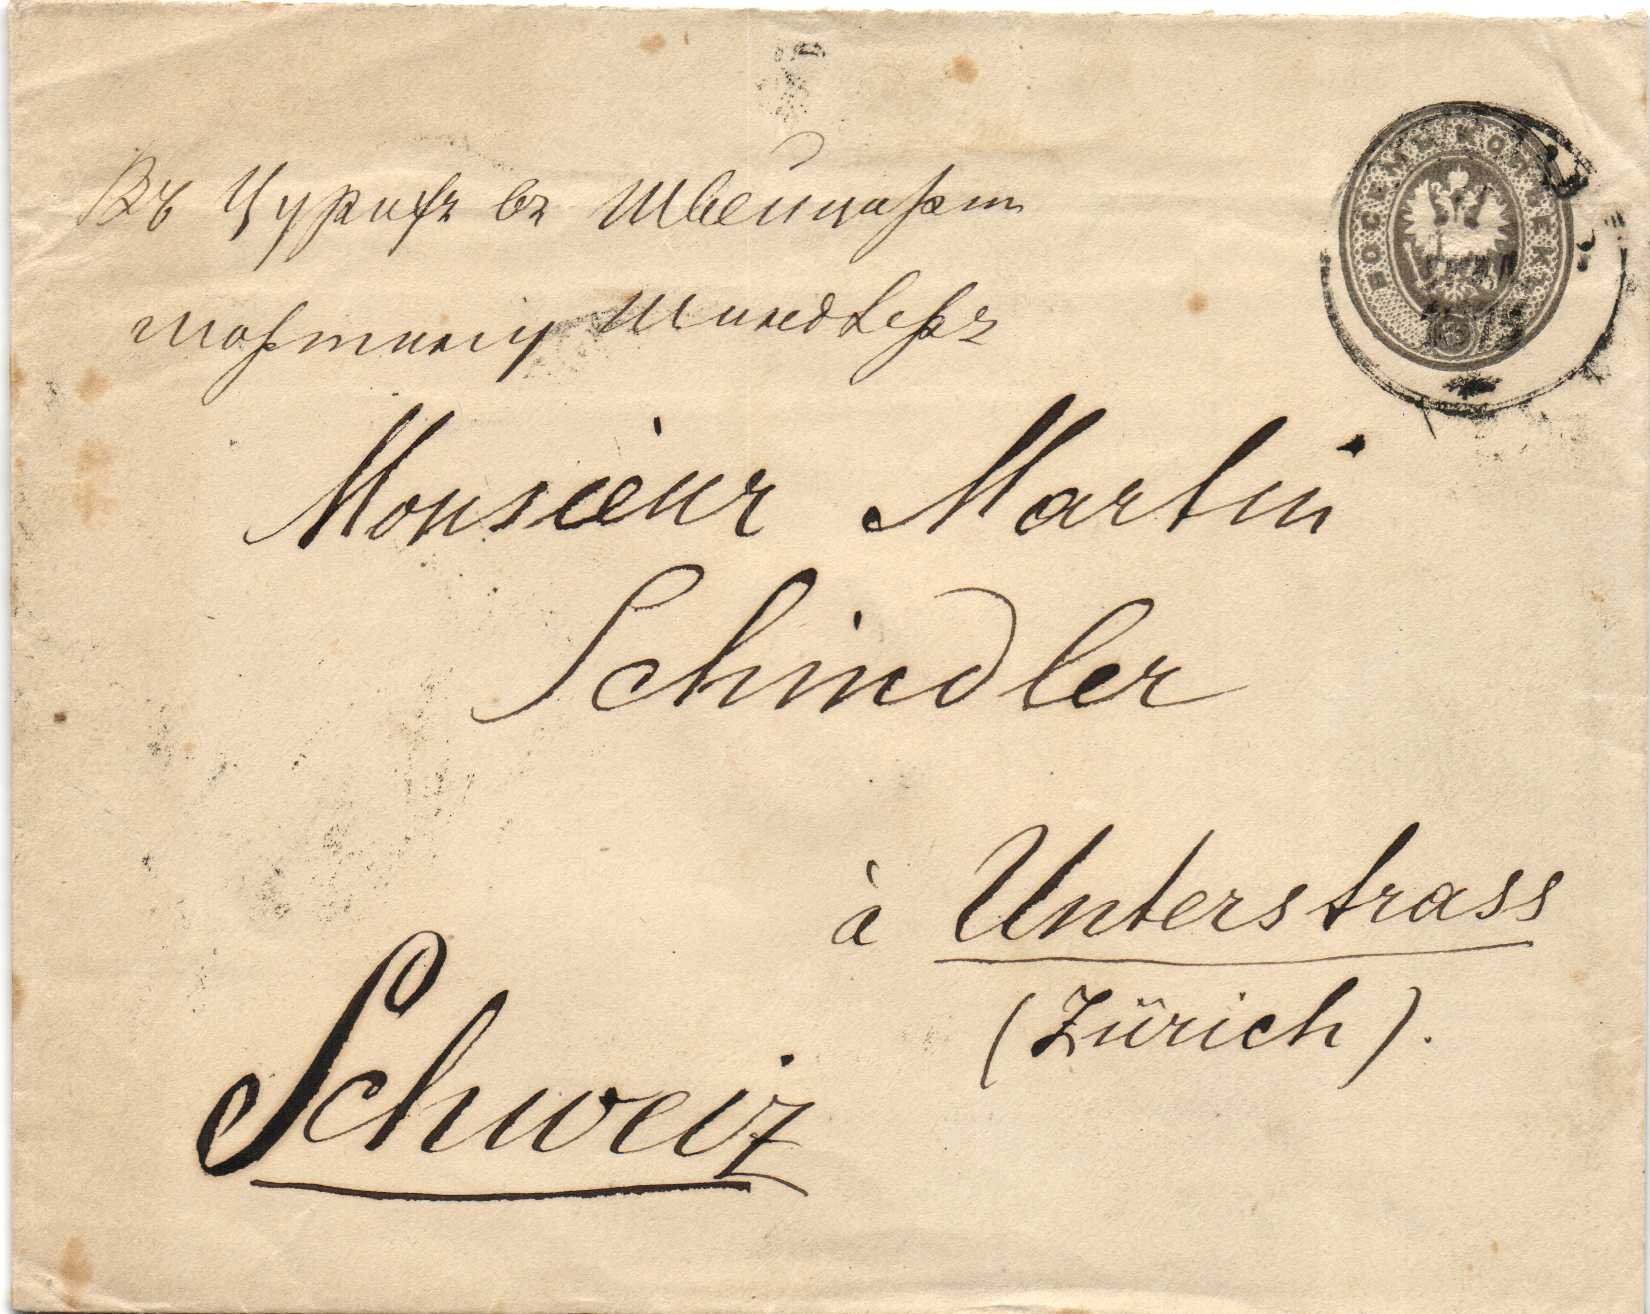 Въ Цурихъ въ Швейцарiи
Мартину Шиндлеръ
ВОСЕМЬ КОПѢЕКЪ
8
Monsieur Martin
Schindler
à Unterstrass
(Zürich).
Schweiz